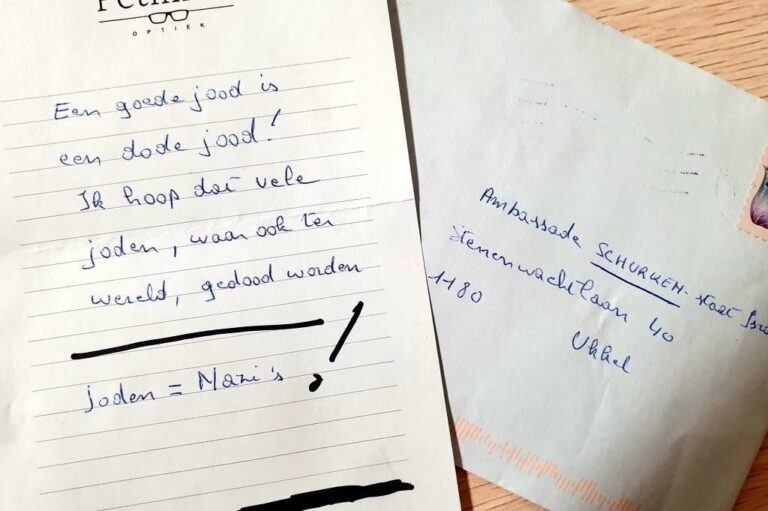 OPTIEK
Een goede jood is
een dode jood!
Ik hoop dat vele
joden, waar ook ter
wereld, gedood worden
!
joden = Nazi's
Ambassade SCHURKEN-staat
Sterrenwachtlaan 40
1180
Ukkel